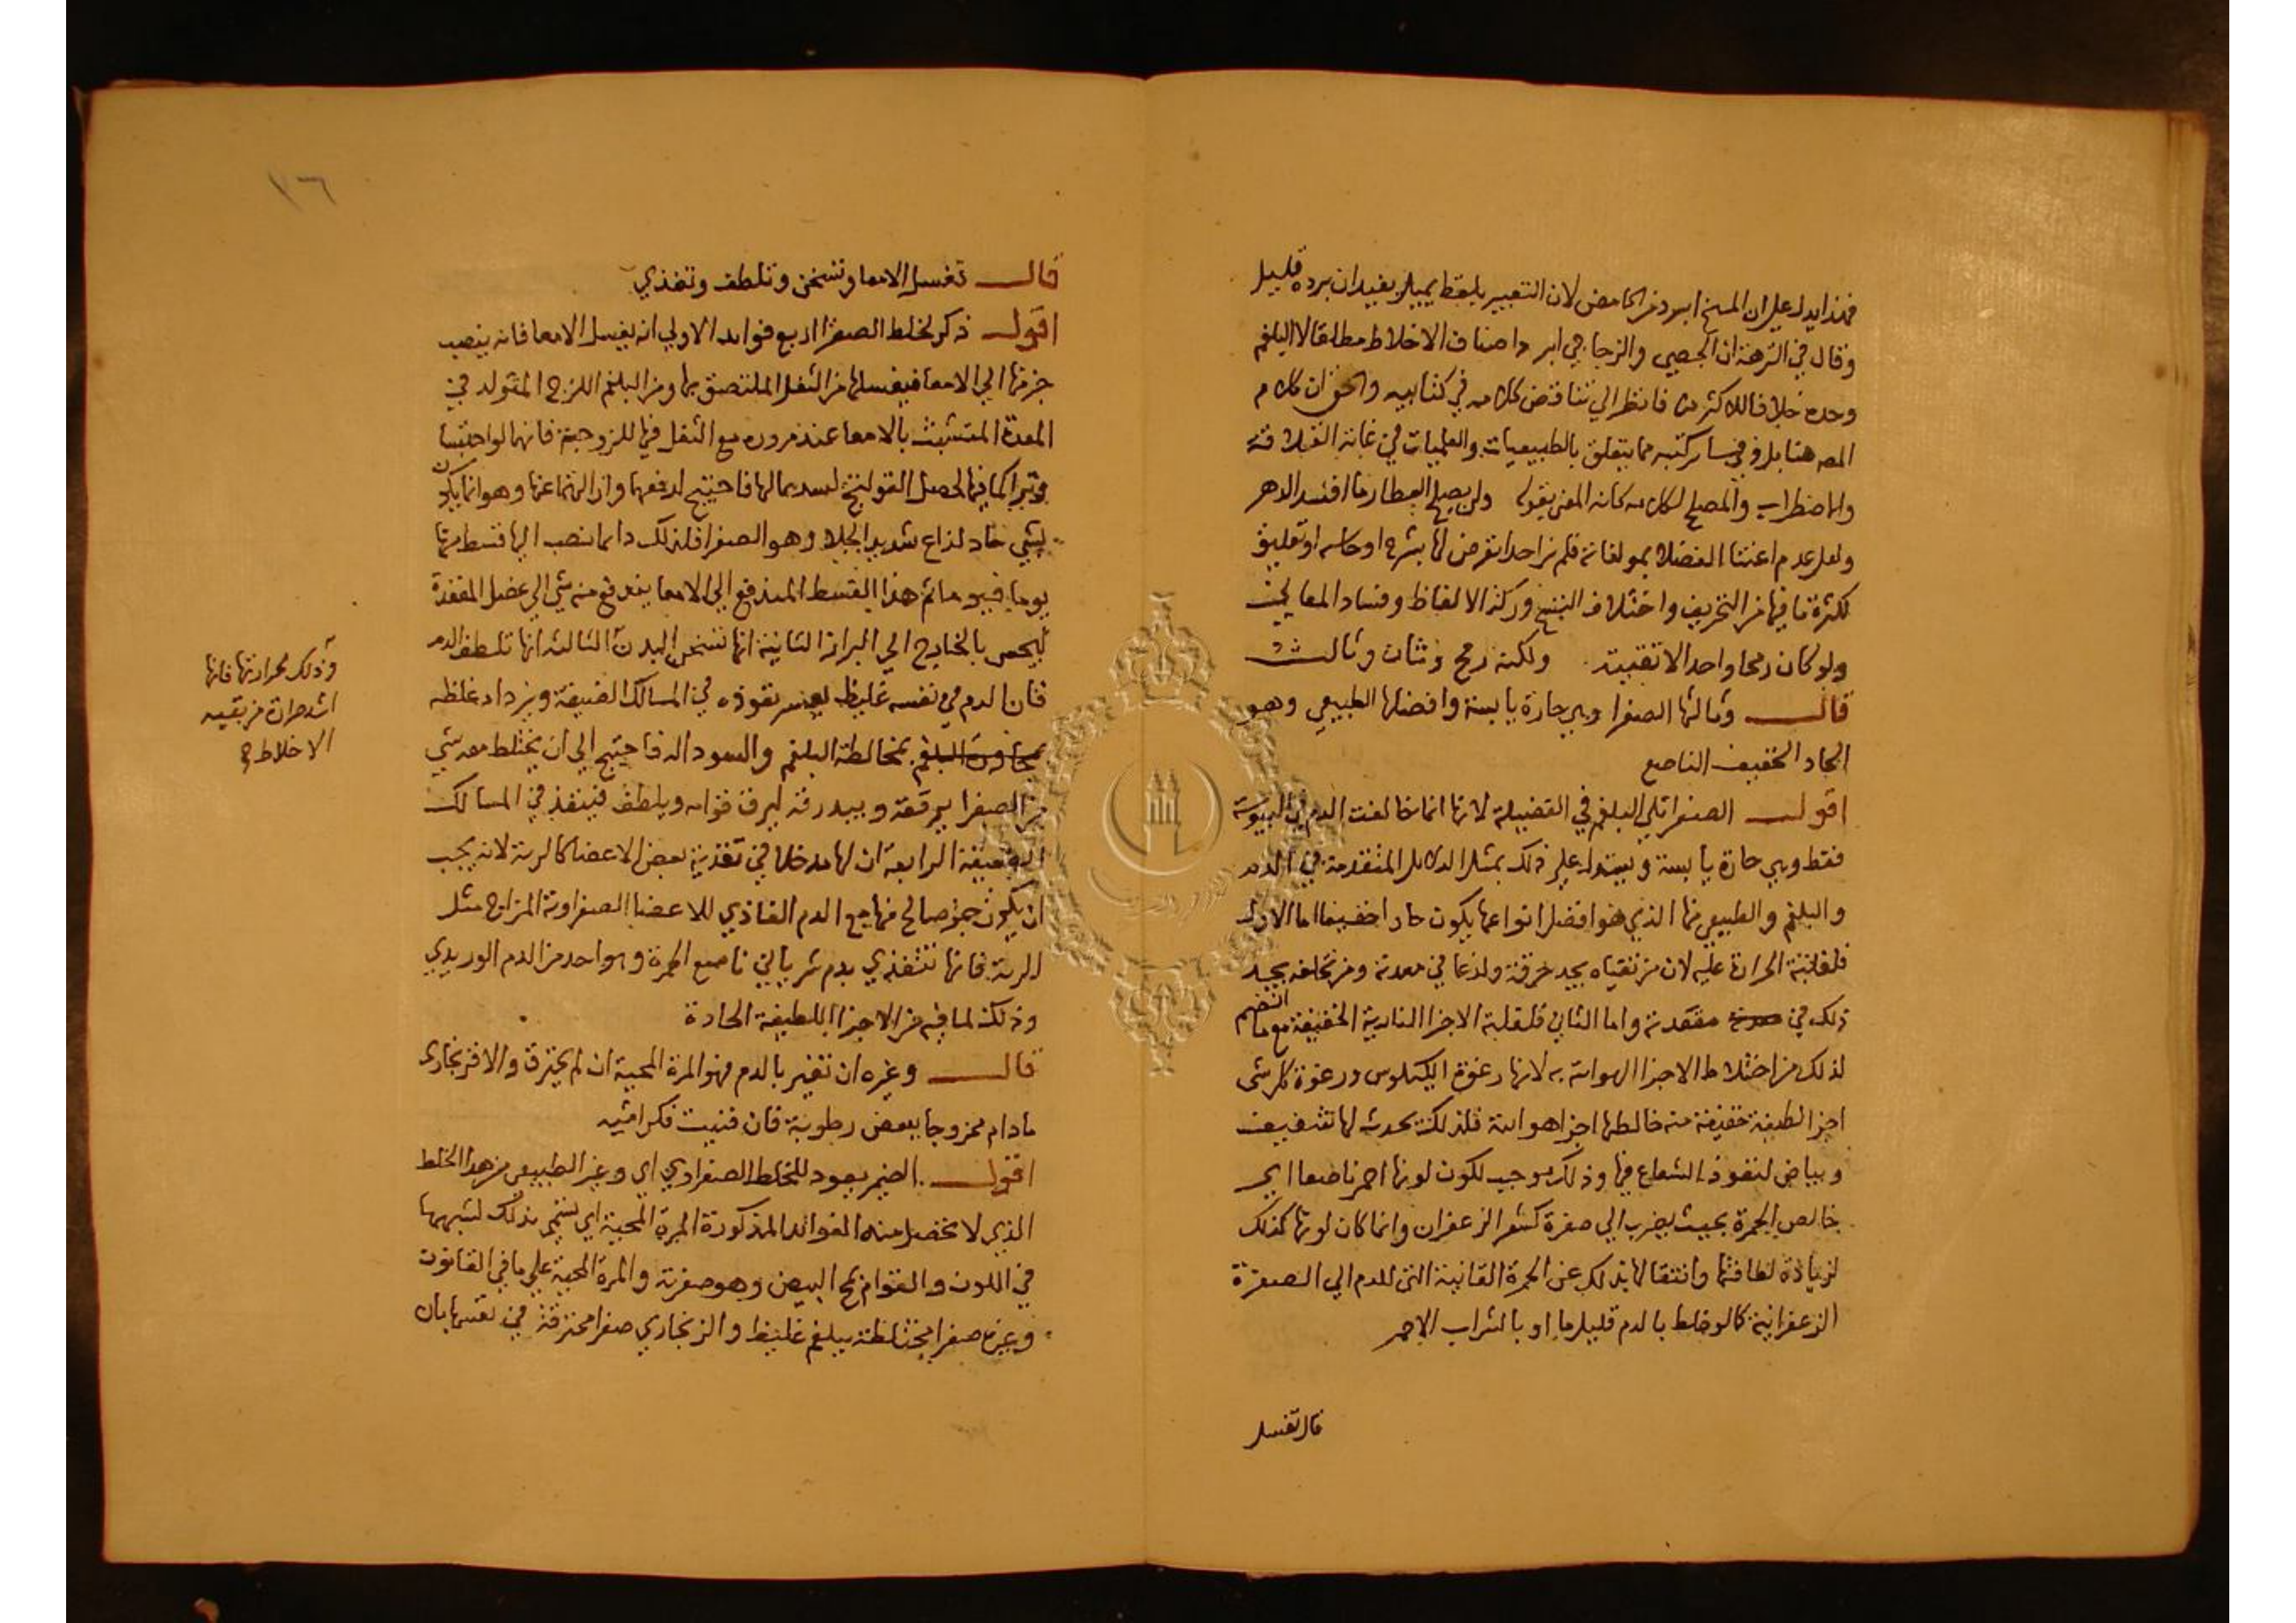 فهذا يدل علي ان المسخ ابرد من الحامض لان التعبير بلفظ يميل يفيد ان برده قليل
وقال في النزهة ان الجصي والزجاجي ابرد اصناف الاخلاط مطلقا لا البلغم
وحده خلافا للاكثرين فانظر الي تناقض كلامه في كتابيه والحق ان كلام
المص هنا بل وفي ساير كتبه مما يتعلق بالطبيعيات والعلميات في غاية القلاقة
والاضطراب والمصلح لكلامه كانه المعني بقوله ولن يصلح العطار ما افسد الدهر
ولعل عدم اعتنا الفضلا بمولفاته فلم نر احدا تعرض لها بشرح او حاشية او تعليق
لكثرة ما فيها من التحريف واختلاف النسخ وركة الالفاظ وفساد المعاني
ولو كان رمحا واحدا لاتقيته ولكنه رمح وثان وثالث
قال وثالثها الصفرا وهي حارة يابسة وافضلها الطبيعي وهو
الحاد الخفيف الناصع
اقول الصفرا تلي البلغم في الفضيلة لانها انما خالفت الدم في اليبوسة
فقط وهي حارة يابسة ويستدل علي ذلك بمثل الدلايل المتقدمة في الدم
والبلغم والطبيعي منها الذي هو افضل انواعها يكون حادا خفيفا اما الاول
فلغلبة الحرارة عليه لان من تقياه يجد حرقة ولذعا في معدته ومن تخلفه يجد
ذلك في مقعدته واما الثاني فلغلبة الاجزا النارية الخفيفة مع ما انضم
لذلك من اختلاط الاجزا الهوائية به لانها رغوة الكيلوس ورغوة كل شي
اجزا لطيفة خفيفة منه خالطها اجزا هوائية فلذلك يحدث لها تشفيف
وبياض لنفوذ الشعاع فيها وذلك يوجب لكون لونها احمر ناصعا اي
خالص الحمرة بحيث يضرب الي صفرة كشعر الزعفران وانما كان لونها كذلك
لزيادة لطافتها وانتقالها بذلك عن الحمرة القانية التي للدم الي الصفرة
الزعفرانية كما لو خلط بالدم قليل ما او بالشراب الاحمر
قال تغسل
١٦
قال تغسل الامعا وتسخن وتلطف وتغذي
اقول ذكر لخلط الصفرا اربع فوايد الاولي انه يغسل الامعا فانه ينصب
جزء منها الي الامعا فيغسلها من الثفل الملتصق بها ومن البلغم اللزج المتولد في
المعدة المتشبث بالامعا عند مروره مع الثفل فيها للزوجته فانهما لو احتبسا
وتراكما فيها لحصل القولنج لسدهما لها فاحتيج لدفعهما وازالتهما عنها وهو انما يكون
بشي حاد لذاع شديد الجلا وهو الصفرا فلذلك دايما ينصب اليها قسط منها
يوما فيوما ثم هذا القسط المندفع الي الامعا يندفع منه شي الي عضل المقعدة
ليحس بالخارج الي البراز الثانية انها تسخن البدن الثالثة انها تلطف الدم
فان الدم في نفسه غليظ يعسر نفوذه في المسالك الضيقة ويزداد غلظه
بمخالطة البلغم والسودا له فاحتيج الي ان يختلط معه شي
من الصفرا يرققه ويبدرقه ليرق قوامه ويلطف فينفذ في المسالك
الضيقة الرابعة ان لها مدخلا في تغذية بعض الاعضا كالرية لانه يجب
ان يكون جزء صالح منها مع الدم الغاذي للاعضا الصفراوية المزاج مثل
الرية فانها تتغذي بدم شرياني ناصع الحمرة وهو احد من الدم الوريدي
وذلك لما فيه من الاجزا اللطيفة الحادة
قال وغيره ان تغير بالدم فهو المرة المحية ان لم يحترق والا فزنجاري
ما دام ممزوجا ببعض رطوبة فان فنيت فكراثي
اقول الضمير يعود للخلط الصفراوي اي وغير الطبيعي من هذا الخلط
الذي لا تحصل منه الفوائد المذكورة المرة المحية اي تسمي بذلك لشبهها
في اللون والقوام بمح البيض وهو صفرته والمرة المحية علي ما في القانون
وغيره صفرا مختلطة ببلغم غليظ والزنجاري صفرا محترقة في نفسها بان
وذلك لحرارتها فانها
اشد حرارة من بقيه
الاخلاط